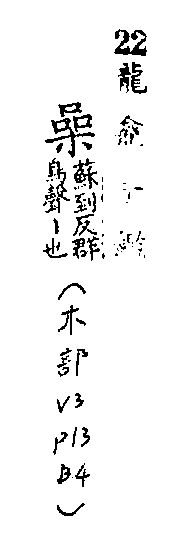 22 龍龕手鑑
喿 蘇到反群
鳥聲丨也
(木部
V3
P13
B4)